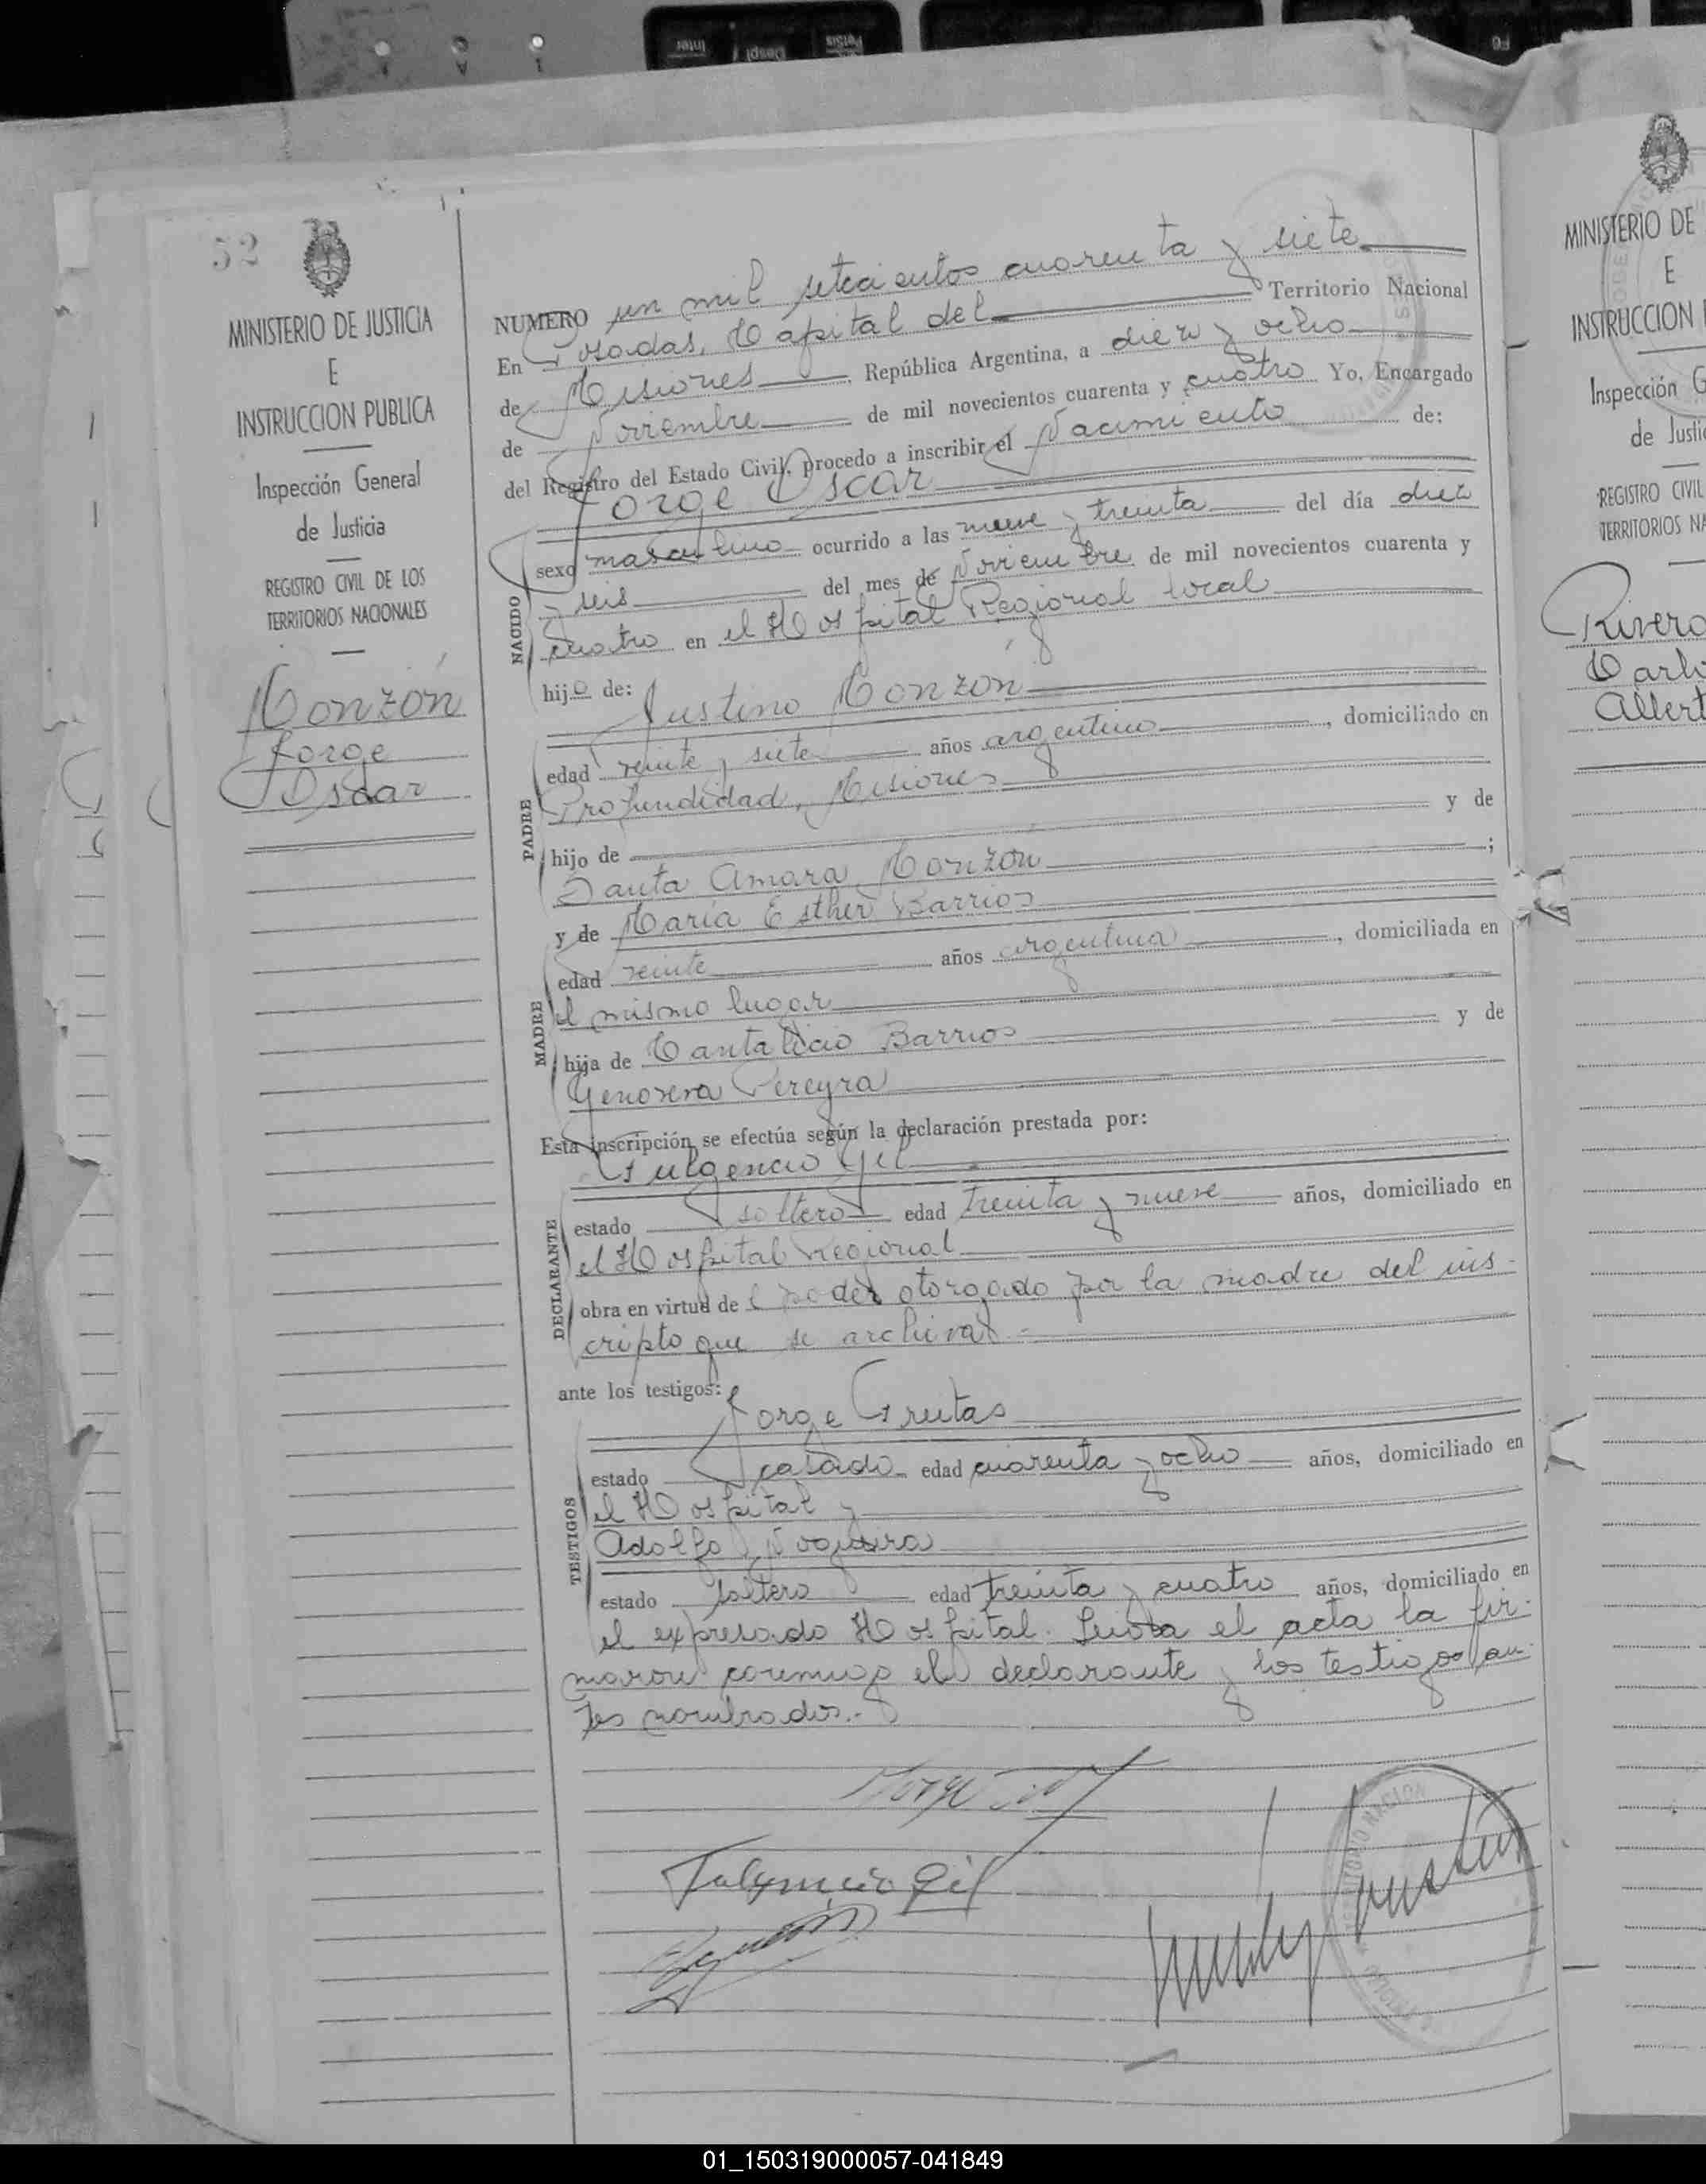 Inter
Despl
PetSis
F6
52
MINISTERIO DE JUSTICIA
E
INSTRUCCION PUBLICA
Inspección General
de Justicia
REGISTRO CIVIL DE LOS
TERRITORIOS NACIONALES
Monzón
Jorge
Oscar
NUMERO un mil setecientos cuarenta y siete
En Posadas, Capital del Territorio Nacional
de Misiones, República Argentina, a diez y ocho
de Noviembre de mil novecientos cuarenta y cuatro Yo, Encargado
del Registro del Estado Civil, procedo a inscribir el Nacimiento de:
Jorge Oscar
NACIDO
sexo masculino ocurrido a las nueve y treinta del día diez
y seis del mes de Noviembre de mil novecientos cuarenta y
cuatro en el Hospital Regional local
hijo de: Justino Monzón
PADRE
edad veinte y siete años argentino, domiciliado en
Profundidad, Misiones
hijo de y de
Santa Amara Monzón;
y de María Esther Barrios
MADRE
edad veinte años argentina, domiciliada en
el mismo lugar
hija de Cantalicio Barrios y de
Genoveva Pereyra
Esta inscripción se efectúa según la declaración prestada por:
Fulgencio Gil
DECLARANTE
estado soltero edad treinta y nueve años, domiciliado en
el Hospital Regional
obra en virtud del poder otorgado por la madre del ins-
cripto que se archiva.-
ante los testigos: Jorge Freitas
TESTIGOS
estado casado edad cuarenta y ocho años, domiciliado en
el Hospital y
Adolfo Nogueira
estado soltero edad treinta y cuatro años, domiciliado en
el expresado Hospital. Leida el acta la fir-
maron conmigo el declarante y los testigos an-
tes nombrados.-
Fulgencio Gil
MINISTERIO DE
E
INSTRUCCION
Inspección G
de Justic
REGISTRO CIVIL
TERRITORIOS NA
Rivero
Carlo
Albert
01_150319000057-041849